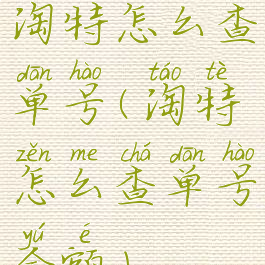 淘特怎么查
dān hào táo tè
单号(淘特
zěn me chá dān hào
怎么查单号
yú é
余额)